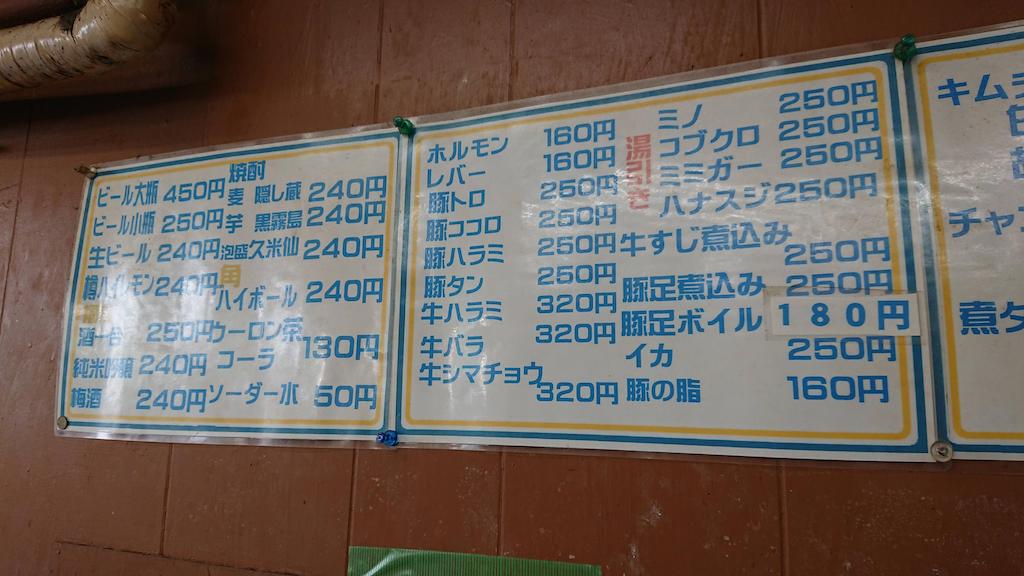 焼酎
ビール大瓶 450円 麦 隠し蔵 240円
ビール小瓶 250円 芋 黒霧島 240円
生ビール 240円 泡盛久米仙 240円
樽ハイレモン 240円 角ハイボール 240円
酒一合 250円 ウーロン茶
純米吟醸 240円 コーラ 130円
梅酒 240円 ソーダー水 50円
ホルモン 160円
レバー 160円
豚トロ 250円
豚ココロ 250円
豚ハラミ 250円
豚タン 250円
牛ハラミ 320円
牛バラ 320円
牛シマチョウ 320円
湯引き
ミノ 250円
コブクロ 250円
ミミガー 250円
ハナスジ 250円
牛すじ煮込み 250円
豚足煮込み 250円
豚足ボイル 180円
イカ 250円
豚の脂 160円
キムチ
チャ
煮タ